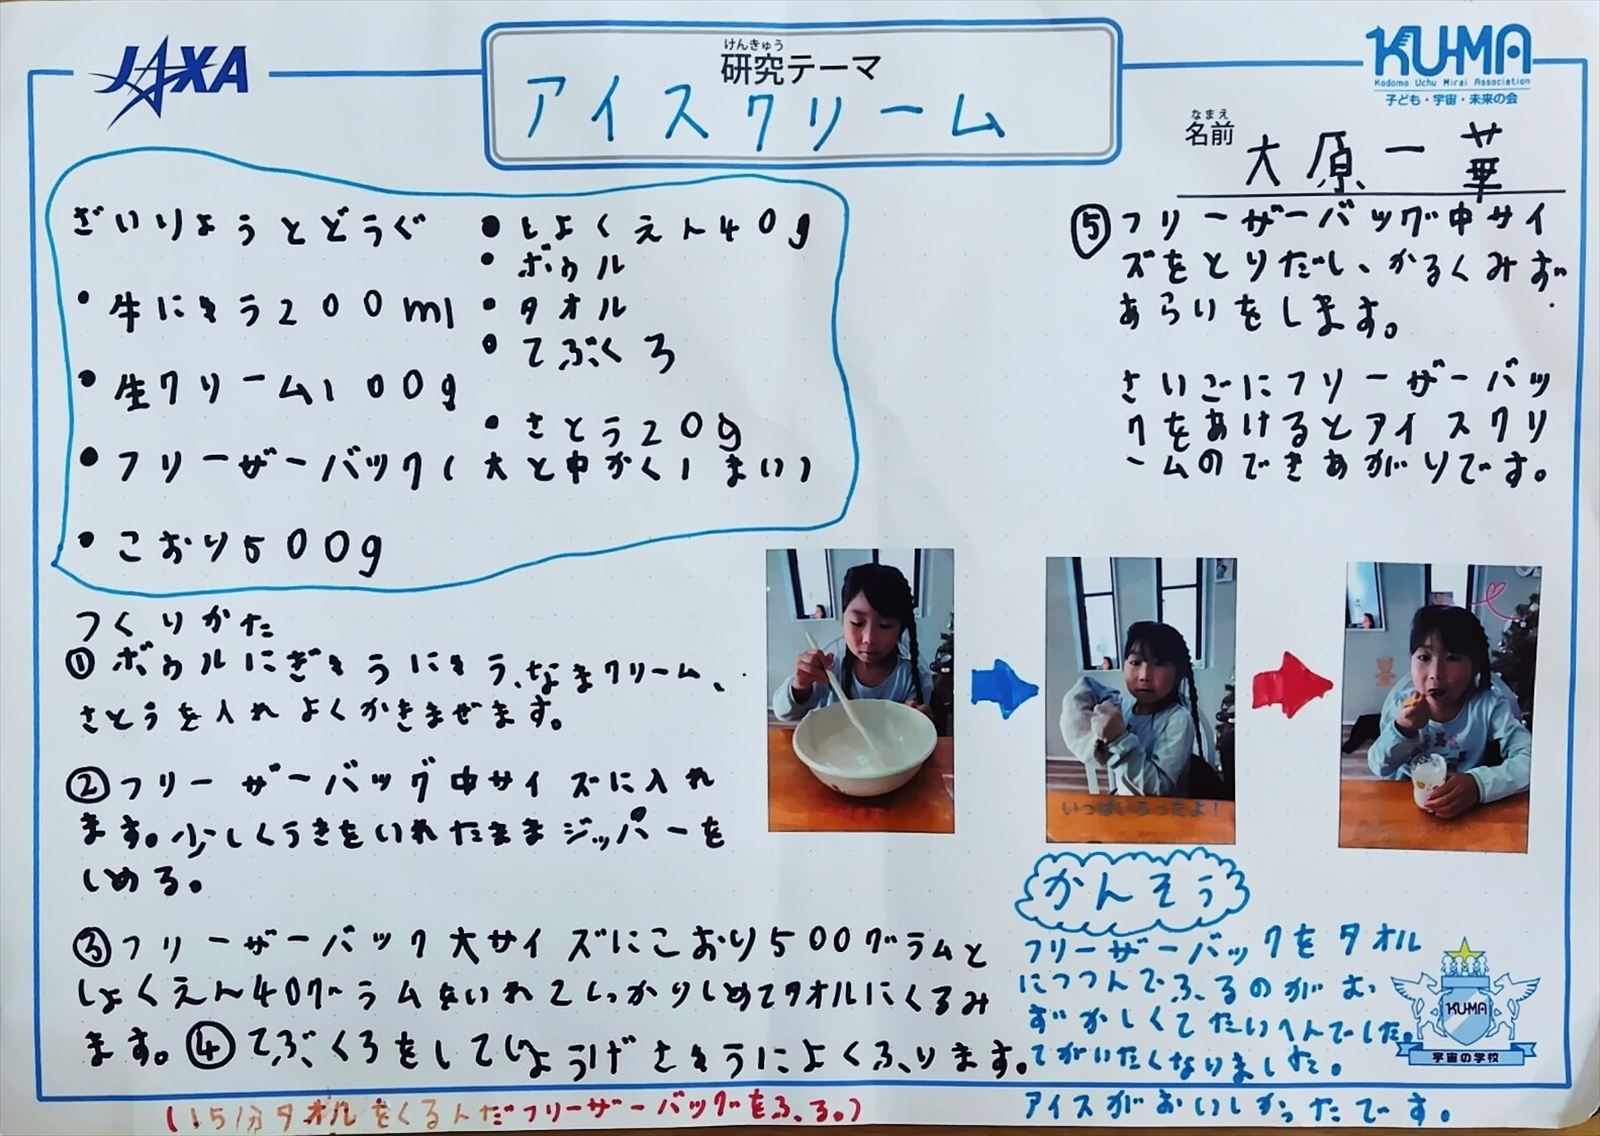 JAXA
けんきゅう
研究テーマ
アイスクリーム
KU-MA
Kodomo Uchu Mirai Association
子ども・宇宙・未来の会
なまえ
名前
大原一華
ざいりょうとどうぐ
・牛にゅう200ml
・生クリーム100g
・フリーザーバック(大と中かく1まい)
・こおり500g
・しょくえん40g
・ボゥル
・タオル
・てぶくろ
・さとう20g
つくりかた
①ボゥルにぎゅうにゅう、なまクリーム、
さとうを入れよくかきまぜます。
②フリーザーバッグ中サイズに入れ
ます。少しくうきをいれたままジッパーを
しめる。
③フリーザーバック大サイズにこおり500グラムと
しょくえん40グラムをいれてしっかりしめてタオルにくるみ
ます。④てぶくろをしてじょうげさゆうによくふります。
(15分タオルをくるんだフリーザーバッグをふる。)
⑤フリーザーバッグ中サイ
ズをとりだし、かるくみず
あらいをします。
さいごにフリーザーバッ
クをあけるとアイスクリ
ームのできあがりです。
いっぱいふったよ!
かんそう
フリーザーバックをタオル
につつんでふるのがむ
ずかしくてたいへんでした。
てがいたくなりました。
アイスがおいしかったです。
KU-MA
宇宙の学校